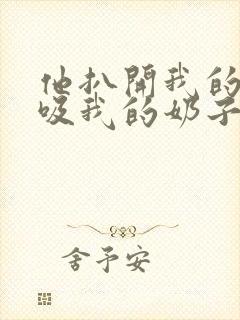 他扒開我的
吸我的奶子
舍予安